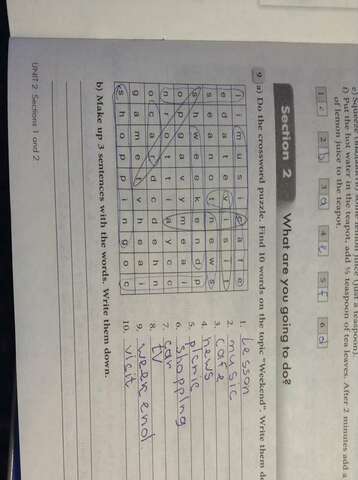 f) Put the hot water in the teapot, add ½ teaspoon of tea leaves. After 2 minutes add a
of lemon juice to the teapot.
1 c 2 b 3 a 4 e 5 f 6 d
Section 2 What are you going to do?
9 a) Do the crossword puzzle. Find 10 words on the topic "Weekend". Write them d
e d a t e v i s i t
s e a n o t n e w s
s h w e e k e n d p
o p g a v y m e a l
o c a r d c d e h n
g a m e t v h e a l
s h o p p i n g o c
1. Lesson
2. music
3. cafe
4. news
5. picnic
6. shopping
7. car
8. tv
9. weekend
10. visit
b) Make up 3 sentences with the words. Write them down.
UNIT 2 Sections 1 and 2